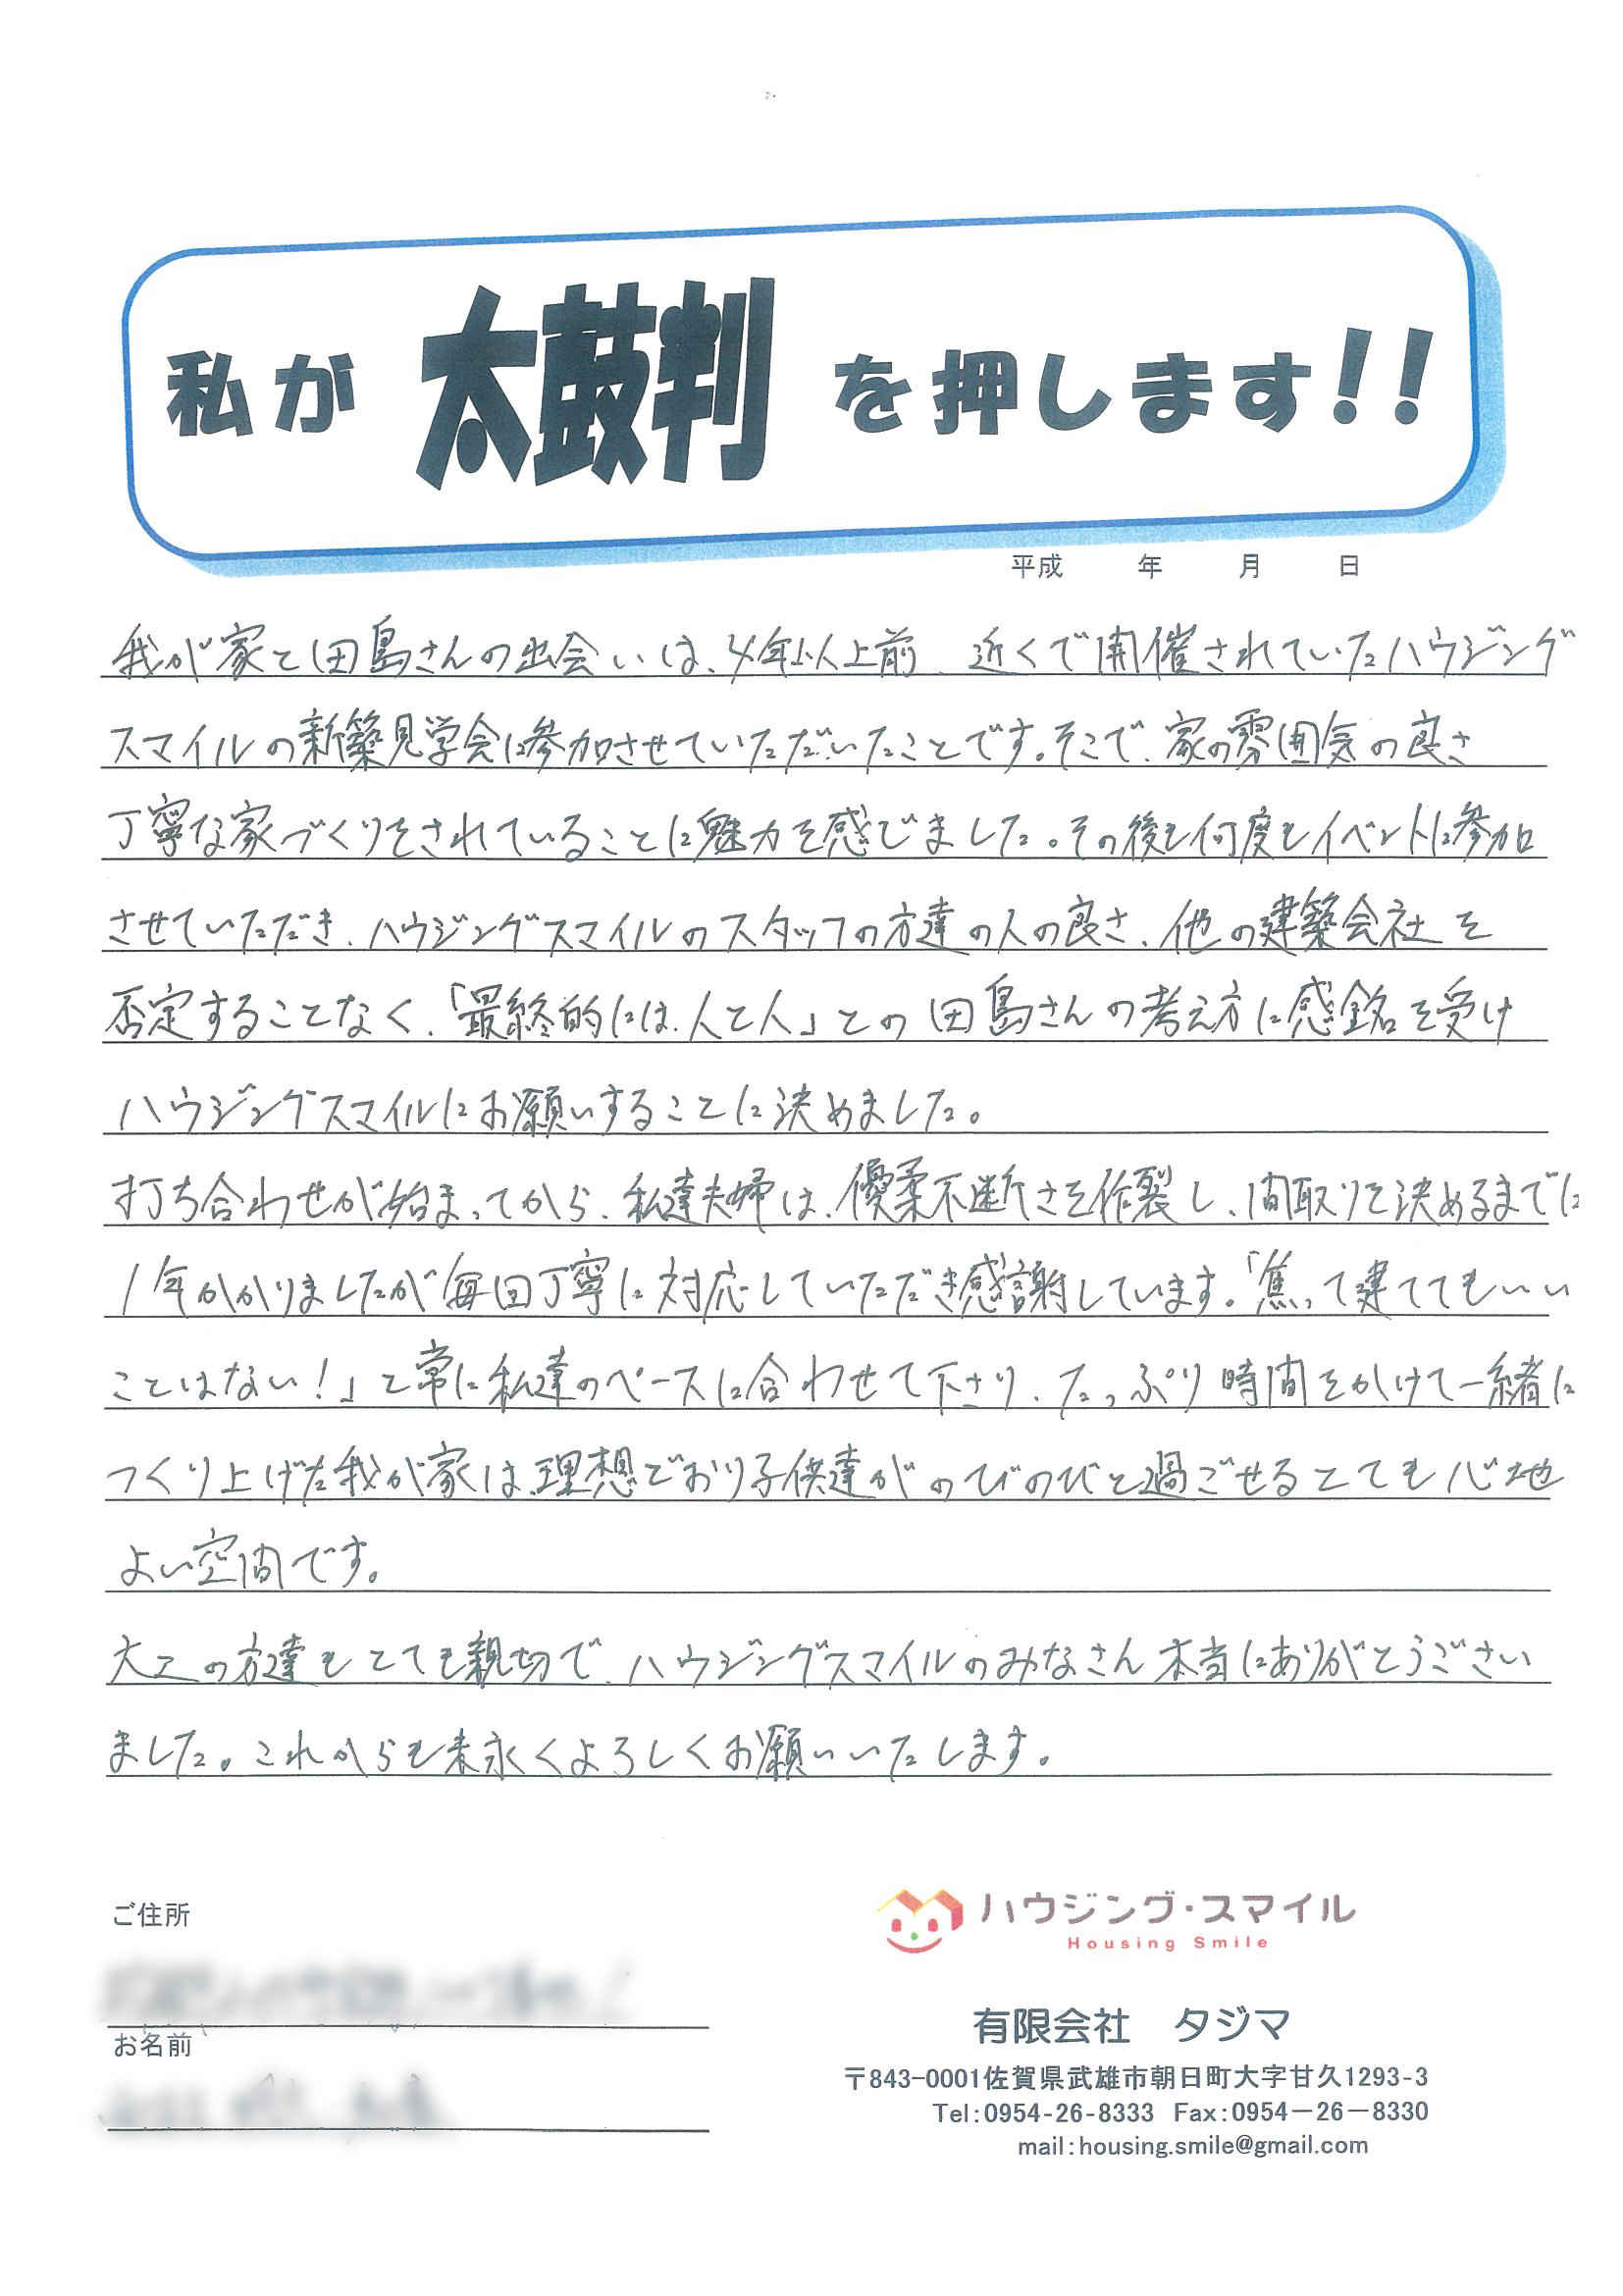 私が 太鼓判 を押します!!
平成 年 月 日
我が家と田島さんの出会いは、4年以上前、近くで開催されていたハウジング
スマイルの新築見学会に参加させていただいたことです。そこで、家の雰囲気の良さ
丁寧な家づくりをされていることに魅力を感じました。その後も何度もイベントに参加
させていただき、ハウジングスマイルのスタッフの方達の人の良さ、他の建築会社を
否定することなく、「最終的には、人と人」との田島さんの考え方に感銘を受け
ハウジングスマイルにお願いすることに決めました。
打ち合わせが始まってから、私達夫婦は、優柔不断さを炸裂し、間取りを決めるまでに
1年かかりましたが毎回丁寧に対応していただき感謝しています。「焦って建ててもいい
ことはない!」と常に私達のペースに合わせて下さり、たっぷり時間をかけて一緒に
つくり上げた我が家は、理想どおり子供達がのびのびと過ごせるとても心地
よい空間です。
大工の方達もとても親切で、ハウジングスマイルのみなさん本当にありがとうござい
ました。これからも末永くよろしくお願いいたします。
ご住所
お名前
ハウジング・スマイル
Housing Smile
有限会社 タジマ
〒843-0001佐賀県武雄市朝日町大字甘久1293-3
Tel:0954-26-8333 Fax:0954-26-8330
mail:housing.smile@gmail.com